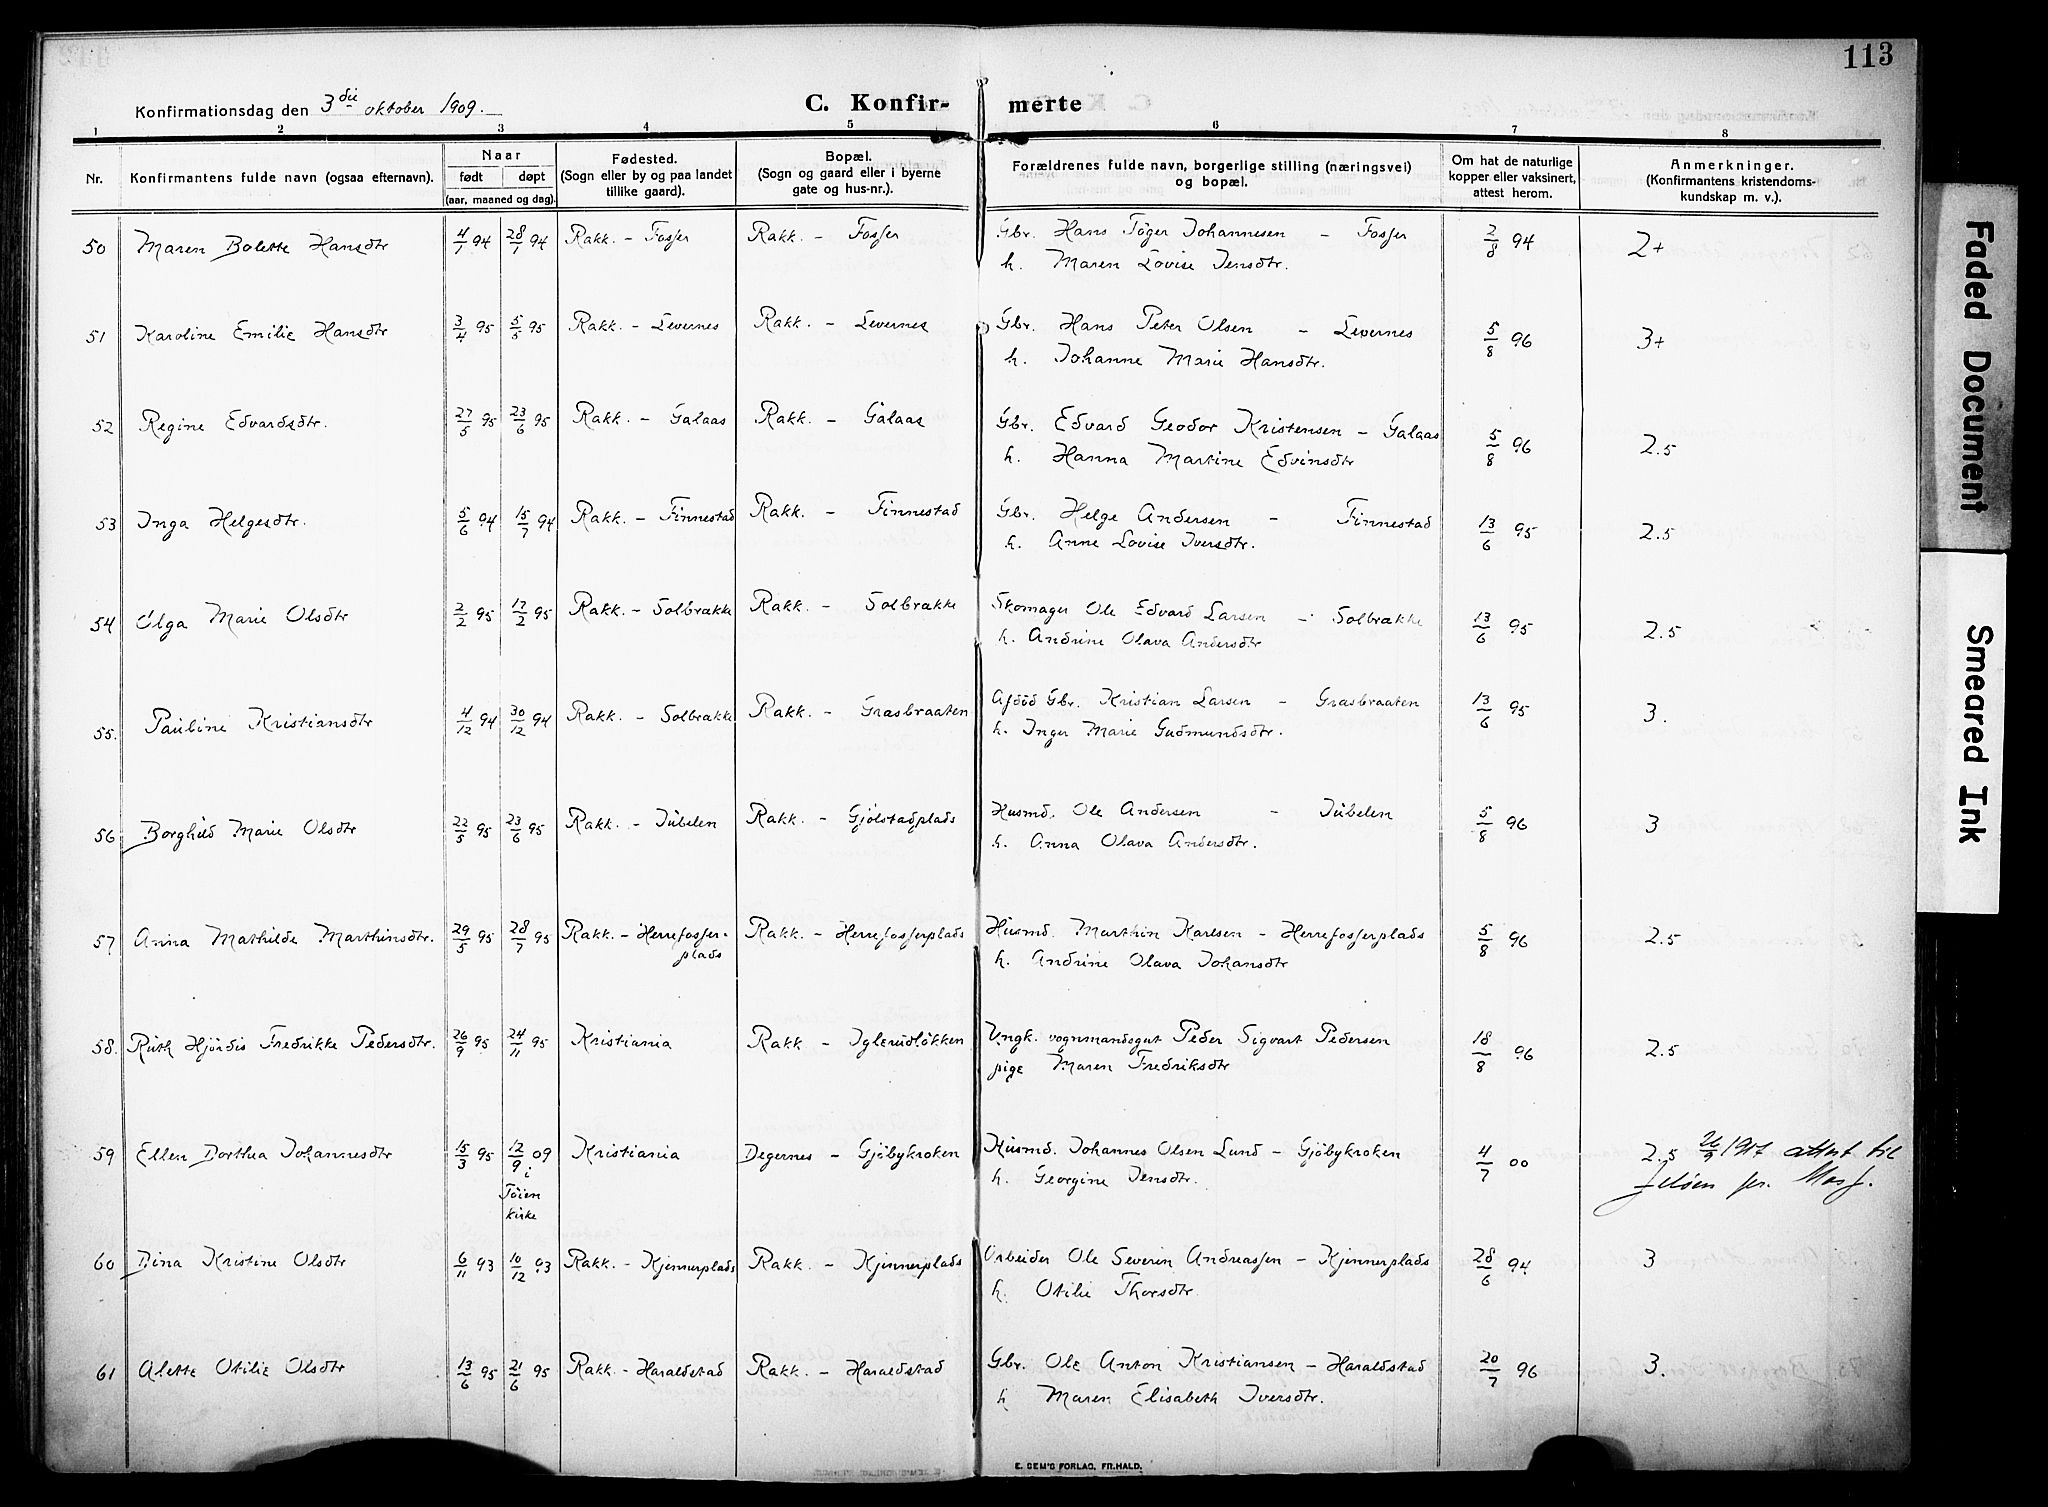 113
Konfirmationsdag den 3die oktober 1909.
C. Konfir- merte
1 2 3 4 5 6 7 8
Nr. Konfirmantens fulde navn (ogsaa efternavn). Naar født døpt (aar, maaned og dag). Fødested. (Sogn eller by og paa landet tillike gaard). Bopæl. (Sogn og gaard eller i byerne gate og hus-nr.). Forældrenes fulde navn, borgerlige stilling (næringsvei) og bopæl. Om hat de naturlige kopper eller vaksinert, attest herom. Anmerkninger. (Konfirmantens kristendomskundskap m. v.).
50 Maren Bolette Hansdtr 4/7 94 28/7 94 Rakk. - Fosser Rakk. - Fosser Gbr. Hans Töger Johannesen - Fosser 2/8 94 2+
h. Maren Lovise Jensdtr.
51 Karoline Emilie Hansdtr 3/4 95 5/5 95 Rakk. - Levernes Rakk. - Levernes Gbr. Hans Peter Olsen - Levernes 5/8 96 3+
h. Johanne Marie Hansdtr.
52 Regine Edvardsdtr. 27/5 95 23/6 95 Rakk. - Galaas Rakk. - Galaas Gbr. Edvard Geodor Kristensen - Galaas 5/8 96 2.5
h. Hanna Martine Edvinsdtr
53 Inga Helgesdtr. 5/6 94 15/7 94 Rakk. - Finnestad Rakk. - Finnestad Gbr. Helge Andersen - Finnestad 13/6 95 2.5
h. Anne Lovise Iversdtr.
54 Olga Marie Olsdtr 2/2 95 17/2 95 Rakk. - Solbrække Rakk. - Solbrække Skomager Ole Edvard Larsen - Solbrække 13/6 95 2.5
h. Andrine Olava Andersdtr
55. Pauline Kristiansdtr 4/12 94 30/12 94 Rakk. - Solbrække Rakk. - Græsbraaten Afdöd Gbr. Kristian Larsen - Græsbraaten 13/6 95 3.
h. Inger Marie Gudmundsdtr.
56 Borghild Marie Olsdtr 22/5 95 23/6 95 Rakk. - Jubelen Rakk. - Gjölstadplads Husmd. Ole Andersen - Jubelen 5/8 96 3
h. Anna Olava Andersdtr.
57 Anna Mathilde Marthinsdtr. 29/5 95 28/7 95 Rakk. - Herrefosser- Rakk. - Herrefosserplads Husmd. Marthin Karlsen - Herrefosserplads 5/8 96 2.5
plads h. Andrine Olava Johansdtr
58. Ruth Hjördis Fredrikke Pedersdtr. 26/9 95 24/11 95 Kristiania Rakk - Iglerudlökken Ungk. vognmandsgut Peder Sigvart Pedersen 18/8 96 2.5
pige Maren Fredriksdtr
59 Ellen Dorthea Johannesdtr 15/3 95 12/9 09 Kristiania Degernes - Gjöbykroken Husmd. Johannes Olsen Lund - Gjöbykroken 4/7 00 2.5 26/9 1917 attest til
i Töien kirke h. Georgine Jensdtr. Jelöen pr. Moss.
60 Dina Kristine Olsdtr 6/11 93 10/12 93 Rakk. - Kjennerplads Rakk. - Kjennerplads Arbeider Ole Severin Andreassen - Kjennerplads 28/6 94 3
h. Otilie Thorsdtr.
61 Alette Otilie Olsdtr 13/6 95 21/6 95 Rakk. - Haraldstad Rakk. - Haraldstad Gbr. Ole Anton Kristiansen - Haraldstad 20/7 96 3.
h Maren Elisabeth Iversdtr.
E. SEM'S FORLAG, FR.HALD.
Faded Document
Smeared Ink